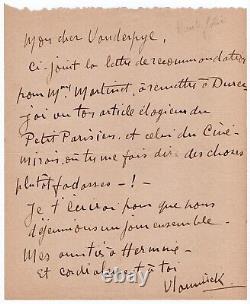 Mon cher Vanderpyl,
Ci-joint la lettre de recommandation
pour Mme Martinet, à remettre à
j'ai vu ton article élogieux du
Petit Parisien, et celui du Ciné-
miroir, où tu me fais dire des choses
plutôt fadasses - ! -
Je t'écrirai pour que nous
déjeunions un jour ensemble.
Mes amitiés à Hermine
et cordialement à toi
Vlaminck